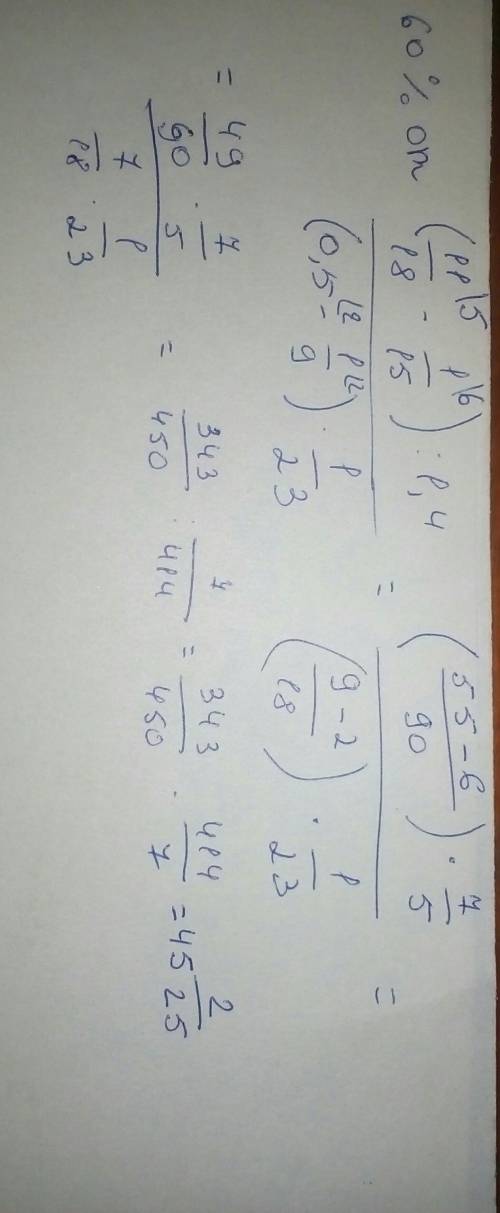 60% от ((11\5)/18 - (1\6)/15) : 1,4 / (0,5\2 - (1\2)/9) · 1/23 = ((55-6)/90) · 7/5 / ((9-2)/18) · 1/23 =
= 49/90 · 7/5 / 7/18 · 1/23 = 343/450 : 7/414 = 343/450 · 414/7 = 45 2/25